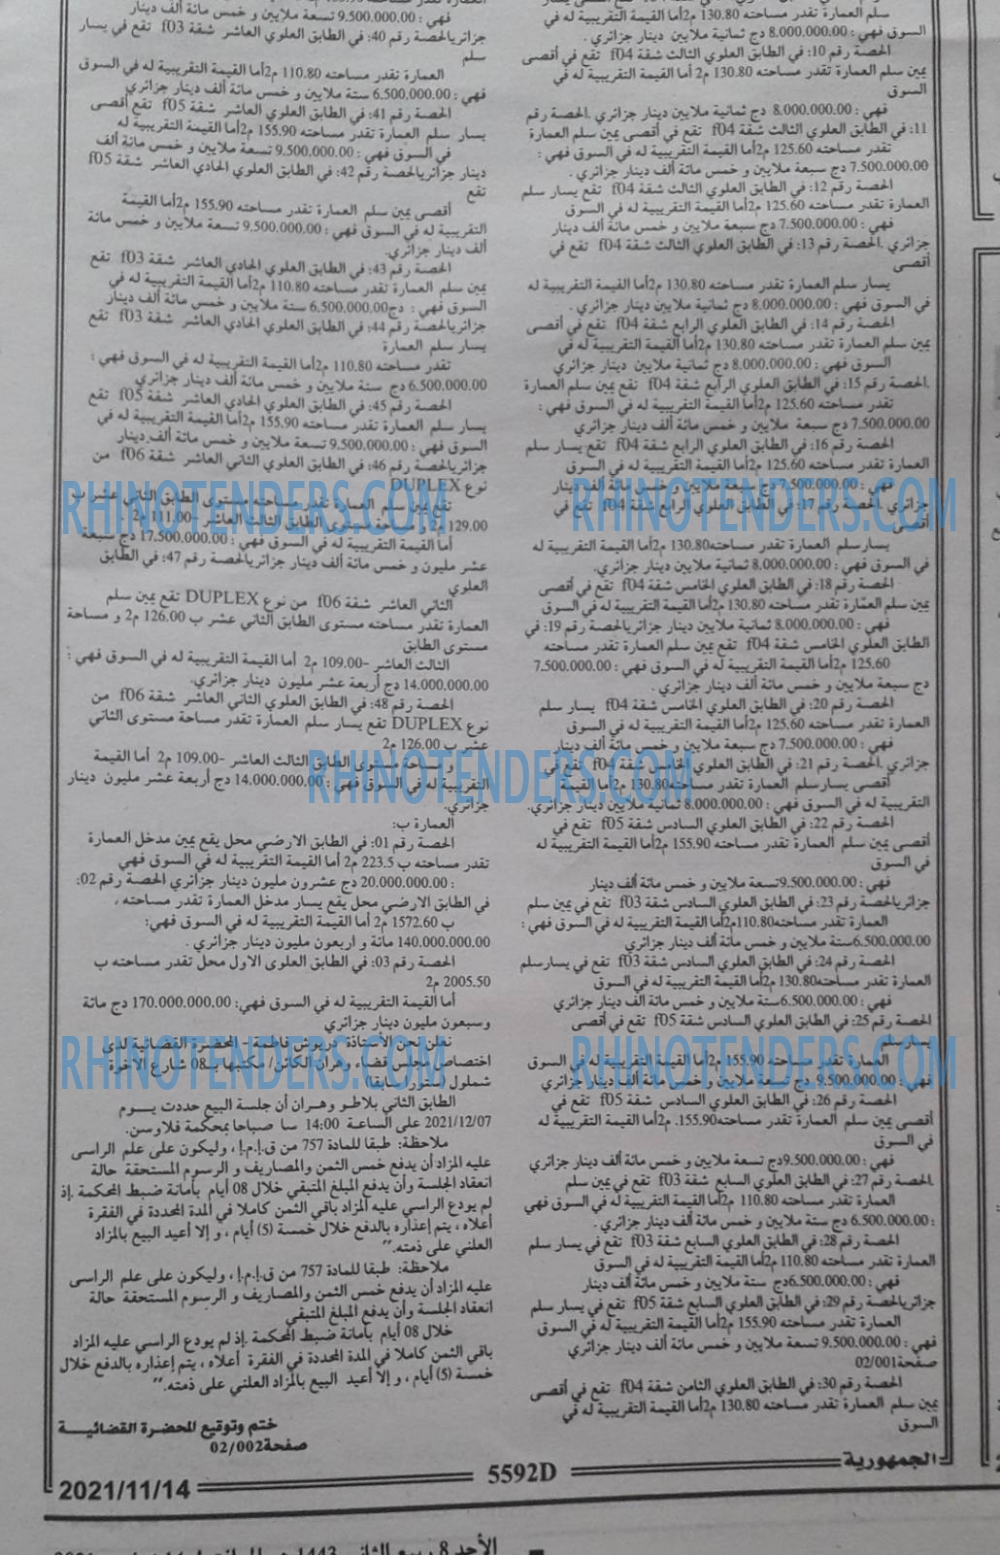 سلم العمارة تقدر مساحته 130.80 م2أما القيمة التقريبية له في
السوق فهي : 8.000.000.00 دج ثمانية ملايين دينار جزائري .
الحصة رقم 10: في الطابق العلوي الثالث شقة f04 تقع في أقصى
يمين سلم العمارة تقدر مساحته 130.80 م2 أما القيمة التقريبية له في
السوق
فهي : 8.000.000.00 دج ثمانية ملايين دينار جزائري .الحصة رقم
11: في الطابق العلوي الثالث شقة f04 تقع في أقصى يمين سلم العمارة
تقدر مساحته 125.60 م2أما القيمة التقريبية له في السوق فهي :
7.500.000.00 دج سبعة ملايين و خمس مائة ألف دينار جزائري .
الحصة رقم 12: في الطابق العلوي الثالث شقة f04 تقع يسار سلم
العمارة تقدر مساحته 125.60 م2أما القيمة التقريبية له في السوق
فهي : 7.500.000.00 دج سبعة ملايين و خمس مائة ألف دينار
جزائري .الحصة رقم 13: في الطابق العلوي الثالث شقة f04 تقع في
أقصى
يسار سلم العمارة تقدر مساحته 130.80 م2أما القيمة التقريبية له
في السوق فهي : 8.000.000.00 دج ثمانية ملايين دينار جزائري.
الحصة رقم 14: في الطابق العلوي الرابع شقة f04 تقع في أقصى
يمين سلم العمارة تقدر مساحته 130.80 م2أما القيمة التقريبية له في
السوق فهي : 8.000.000.00 دج ثمانية ملايين دينار جزائري
.الحصة رقم 15: في الطابق العلوي الرابع شقة f04 تقع يمين سلم العمارة
تقدر مساحته 125.60 م2أما القيمة التقريبية له في السوق فهي :
7.500.000.00 دج سبعة ملايين و خمس مائة ألف دينار جزائري
الحصة رقم 16: في الطابق العلوي الرابع شقة f04 تقع يسار سلم
العمارة تقدر مساحته 125.60 م2أما القيمة التقريبية له في السوق
فهي : 7.500.000.00 دج سبعة ملايين و خمس مائة ألف دينار
جزائري .الحصة رقم 17: في الطابق العلوي الرابع شقة f04 تقع في
أقصى
يسارسلم العمارة تقدر مساحته130.80 م2أما القيمة التقريبية له
في السوق فهي : 8.000.000.00 ثمانية ملايين دينار جزائري.
الحصة رقم 18: في الطابق العلوي الخامس شقة f04 تقع في أقصى
يمين سلم العمارة تقدر مساحته 130.80 م2أما القيمة التقريبية له في السوق
فهي : 8.000.000.00 ثمانية ملايين دينار جزائريالحصة رقم 19: في
الطابق العلوي الخامس شقة f04 تقع يمين سلم العمارة تقدر مساحته
125.60 م2أما القيمة التقريبية له في السوق فهي : 7.500.000.00
دج سبعة ملايين و خمس مائة ألف دينار جزائري .
الحصة رقم 20: في الطابق العلوي الخامس شقة f04 يسار سلم
العمارة تقدر مساحته 125.60 م2أما القيمة التقريبية له في السوق
فهي : 7.500.000.00 دج سبعة ملايين و خمس مائة ألف دينار
جزائري .الحصة رقم 21: في الطابق العلوي الخامس شقة f04 تقع في
أقصى يسار سلم العمارة تقدر مساحته130.80 م2أما القيمة
التقريبية له في السوق فهي : 8.000.000.00 ثمانية ملايين دينار جزائري.
الحصة رقم 22: في الطابق العلوي السادس شقة f05 تقع في
أقصى يمين سلم العمارة تقدر مساحته 155.90 م2أما القيمة التقريبية له
في السوق
فهي : 9.500.000.00تسعة ملايين و خمس مائة ألف دينار
جزائريالحصة رقم 23: في الطابق العلوي السادس شقة f03 تقع في يمين سلم
العمارة تقدر مساحته110.80م2أما القيمة التقريبية له في السوق فهي :
6.500.000.00ستة ملايين و خمس مائة ألف دينار جزائري
الحصة رقم 24: في الطابق العلوي السادس شقة f03 تقع في يسارسلم
العمارة تقدر مساحته130.80م2أما القيمة التقريبية له في السوق
فهي : 6.500.000.00ستة ملايين و خمس مائة ألف دينار جزائري
الحصة رقم 25: في الطابق العلوي السادس شقة f05 تقع في أقصى
يسارسلم
العمارة تقدر مساحته 155.90 م2أما القيمة التقريبية له في السوق
فهي : 9.500.000.00 دج تسعة ملايين و خمس مائة ألف دينار جزائري
الحصة رقم 26: في الطابق العلوي السادس شقة f05 تقع في
أقصى يمين سلم العمارة تقدر مساحته 155.90. م2أما القيمة التقريبية له
في السوق
فهي : 9.500.000.00دج تسعة ملايين و خمس مائة ألف دينار جزائري
.الحصة رقم 27: في الطابق العلوي السابع شقة f03 تقع في يمين سلم
العمارة تقدر مساحته 110.80 م2أما القيمة التقريبية له في السوق فهي
: 6.500.000.00 دج ستة ملايين و خمس مائة ألف دينار جزائري .
الحصة رقم 28: في الطابق العلوي السابع شقة f03 تقع في يسار سلم
العمارة تقدر مساحته 110.80 م2أما القيمة التقريبية له في السوق
فهي : 6.500.000.00دج ستة ملايين و خمس مائة ألف دينار
جزائريالحصة رقم 29: في الطابق العلوي السابع شقة f05 تقع في يسار سلم
العمارة تقدر مساحته 155.90 م2أما القيمة التقريبية له في السوق
فهي : 9.500.000.00 تسعة ملايين و خمس مائة ألف دينار جزائري
صفحة02/001
الحصة رقم 30: في الطابق العلوي الثامن شقة f04 تقع في أقصى
يمين سلم العمارة تقدر مساحته 130.80 م2أما القيمة التقريبية له في
السوق
فهي : 9.500.000.00 تسعة ملايين و خمس مائة ألف دينار
جزائريالحصة رقم 40: في الطابق العلوي العاشر شقة f03 تقع في يسار
سلم
العمارة تقدر مساحته 110.80 م2أما القيمة التقريبية له في السوق
فهي : 6.500.000.00 ستة ملايين و خمس مائة ألف دينار جزائري
الحصة رقم 41: في الطابق العلوي العاشر شقة f05 تقع أقصى
يسار سلم العمارة تقدر مساحته 155.90 م2أما القيمة التقريبية له
في السوق فهي : 9.500.000.00 تسعة ملايين و خمس مائة ألف
دينار جزائريالحصة رقم 42: في الطابق العلوي الحادي العاشر شقة f05
تقع
أقصى يمين سلم العمارة تقدر مساحته 155.90 م2أما القيمة
التقريبية له في السوق فهي : 9.500.000.00 تسعة ملايين و خمس مائة
ألف دينار جزائري.
الحصة رقم 43: في الطابق العلوي الحادي العاشر شقة f03 تقع
يمين سلم العمارة تقدر مساحته 110.80 م2أما القيمة التقريبية له في
السوق فهي : دج6.500.000.00 ستة ملايين و خمس مائة ألف دينار
جزائريالحصة رقم 44: في الطابق العلوي الحادي العاشر شقة f03 تقع
يسار سلم العمارة
تقدر مساحته 110.80 م2أما القيمة التقريبية له في السوق فهي :
6.500.000.00 دج ستة ملايين و خمس مائة ألف دينار جزائري
الحصة رقم 45: في الطابق العلوي الحادي العاشر شقة f05 تقع
يسار سلم العمارة تقدر مساحته 155.90 م2أما القيمة التقريبية له في
السوق فهي : 9.500.000.00 تسعة ملايين و خمس مائة ألف دينار
جزائريالحصة رقم 46: في الطابق العلوي الثاني العاشر شقة f06 من
نوع DUPLEX
تقع يمين سلم العمارة تقدر مساحته مستوى الطابق الثاني عشر ب
129.00 م2 و مساحة مستوى الطابق الثالث العاشر -111.00 م2
أما القيمة التقريبية له في السوق فهي : 17.500.000.00 دج سبعة
عشر مليون و خمس مائة ألف دينار جزائريالحصة رقم 47: في الطابق
العلوي
الثاني العاشر شقة f06 من نوع DUPLEX تقع يمين سلم
العمارة تقدر مساحته مستوى الطابق الثاني عشر ب 126.00 م2 و مساحة
مستوى الطابق
الثالث العاشر -109.00 م2 أما القيمة التقريبية له في السوق فهي :
14.000.000.00 دج أربعة عشر مليون دينار جزائري.
الحصة رقم 48: في الطابق العلوي الثاني العاشر شقة f06 من
نوع DUPLEX تقع يسار سلم العمارة تقدر مساحة مستوى الثاني
عشر ب 126.00 م2
و مساحة مستوى الطابق الثالث العاشر -109.00 م2 أما القيمة
التقريبية له في السوق فهي : 14.000.000.00 دج أربعة عشر مليون دينار
جزائري.
العمارة ب:
الحصة رقم 01: في الطابق الارضي محل يقع يمين مدخل العمارة
تقدر مساحته ب 223.5 م2 أما القيمة التقريبية له في السوق فهي
: 20.000.000.00 دج عشرون مليون دينار جزائري الحصة رقم 02:
في الطابق الارضي محل يقع يسار مدخل العمارة تقدر مساحته ،
ب 1572.60 م2 أما القيمة التقريبية له في السوق فهي:
140.000.000.00 مائة و اربعون مليون دينار جزائري .
الحصة رقم 03: في الطابق العلوي الاول محل تقدر مساحته ب
2005.50 م2
أما القيمة التقريبية له في السوق فهي: 170.000.000.00 دج مائة
وسبعون مليون دينار جزائري
نعلن نحن الأستاذة/ دريوش فاطمة - المحضرة القضائية لدى
اختصاص مجلس قضاء وهران الكائن/ مكتبها بـ08 شارع الاخوة
شملول (ستور سابقا)
الطابق الثاني بلاطو وهران أن جلسة البيع حددت يـــوم
2021/12/07 على الساعة 14:00 سا صباحا بمحكمة فلاوسن.
ملاحظة: طبقا للمادة 757 من ق.إ.م.إ ، وليكون على علم الراسى
عليه المزاد أن يدفع خمس الثمن والمصاريف و الرسوم المستحقة حالة
انعقاد الجلسة وأن يدفع المبلغ المتبقي خلال 08 أيام بأمانة ضبط المحكمة .إذ
لم يودع الراسي عليه المزاد باقي الثمن كاملا في المدة المحددة في الفقرة
أعلاه ، يتم إعذاره بالدفع خلال خمسة (5) أيام ، و إلا أعيد البيع بالمزاد
العلني على ذمته.”
ملاحظة: طبقا للمادة 757 من ق.إ.م.إ ، وليكون على علم الراسى
عليه المزاد أن يدفع خمس الثمن والمصاريف و الرسوم المستحقة حالة
انعقاد الجلسة وأن يدفع المبلغ المتبقي
خلال 08 أيام بأمانة ضبط المحكمة .إذ لم يودع الراسي عليه المزاد
باقي الثمن كاملا في المدة المحددة في الفقرة أعلاه ، يتم إعذاره بالدفع خلال
خمسة (5) أيام ، و إلا أعيد البيع بالمزاد العلني على ذمته.”
ختم وتوقيع المحضرة القضائيـــة
صفحة02/002
الجمهورية
5592D
2021/11/14
RHINOTENDERS.COM
RHINOTENDERS.COM
RHINOTENDERS.COM
RHINOTENDERS.COM
RHINOTENDERS.COM